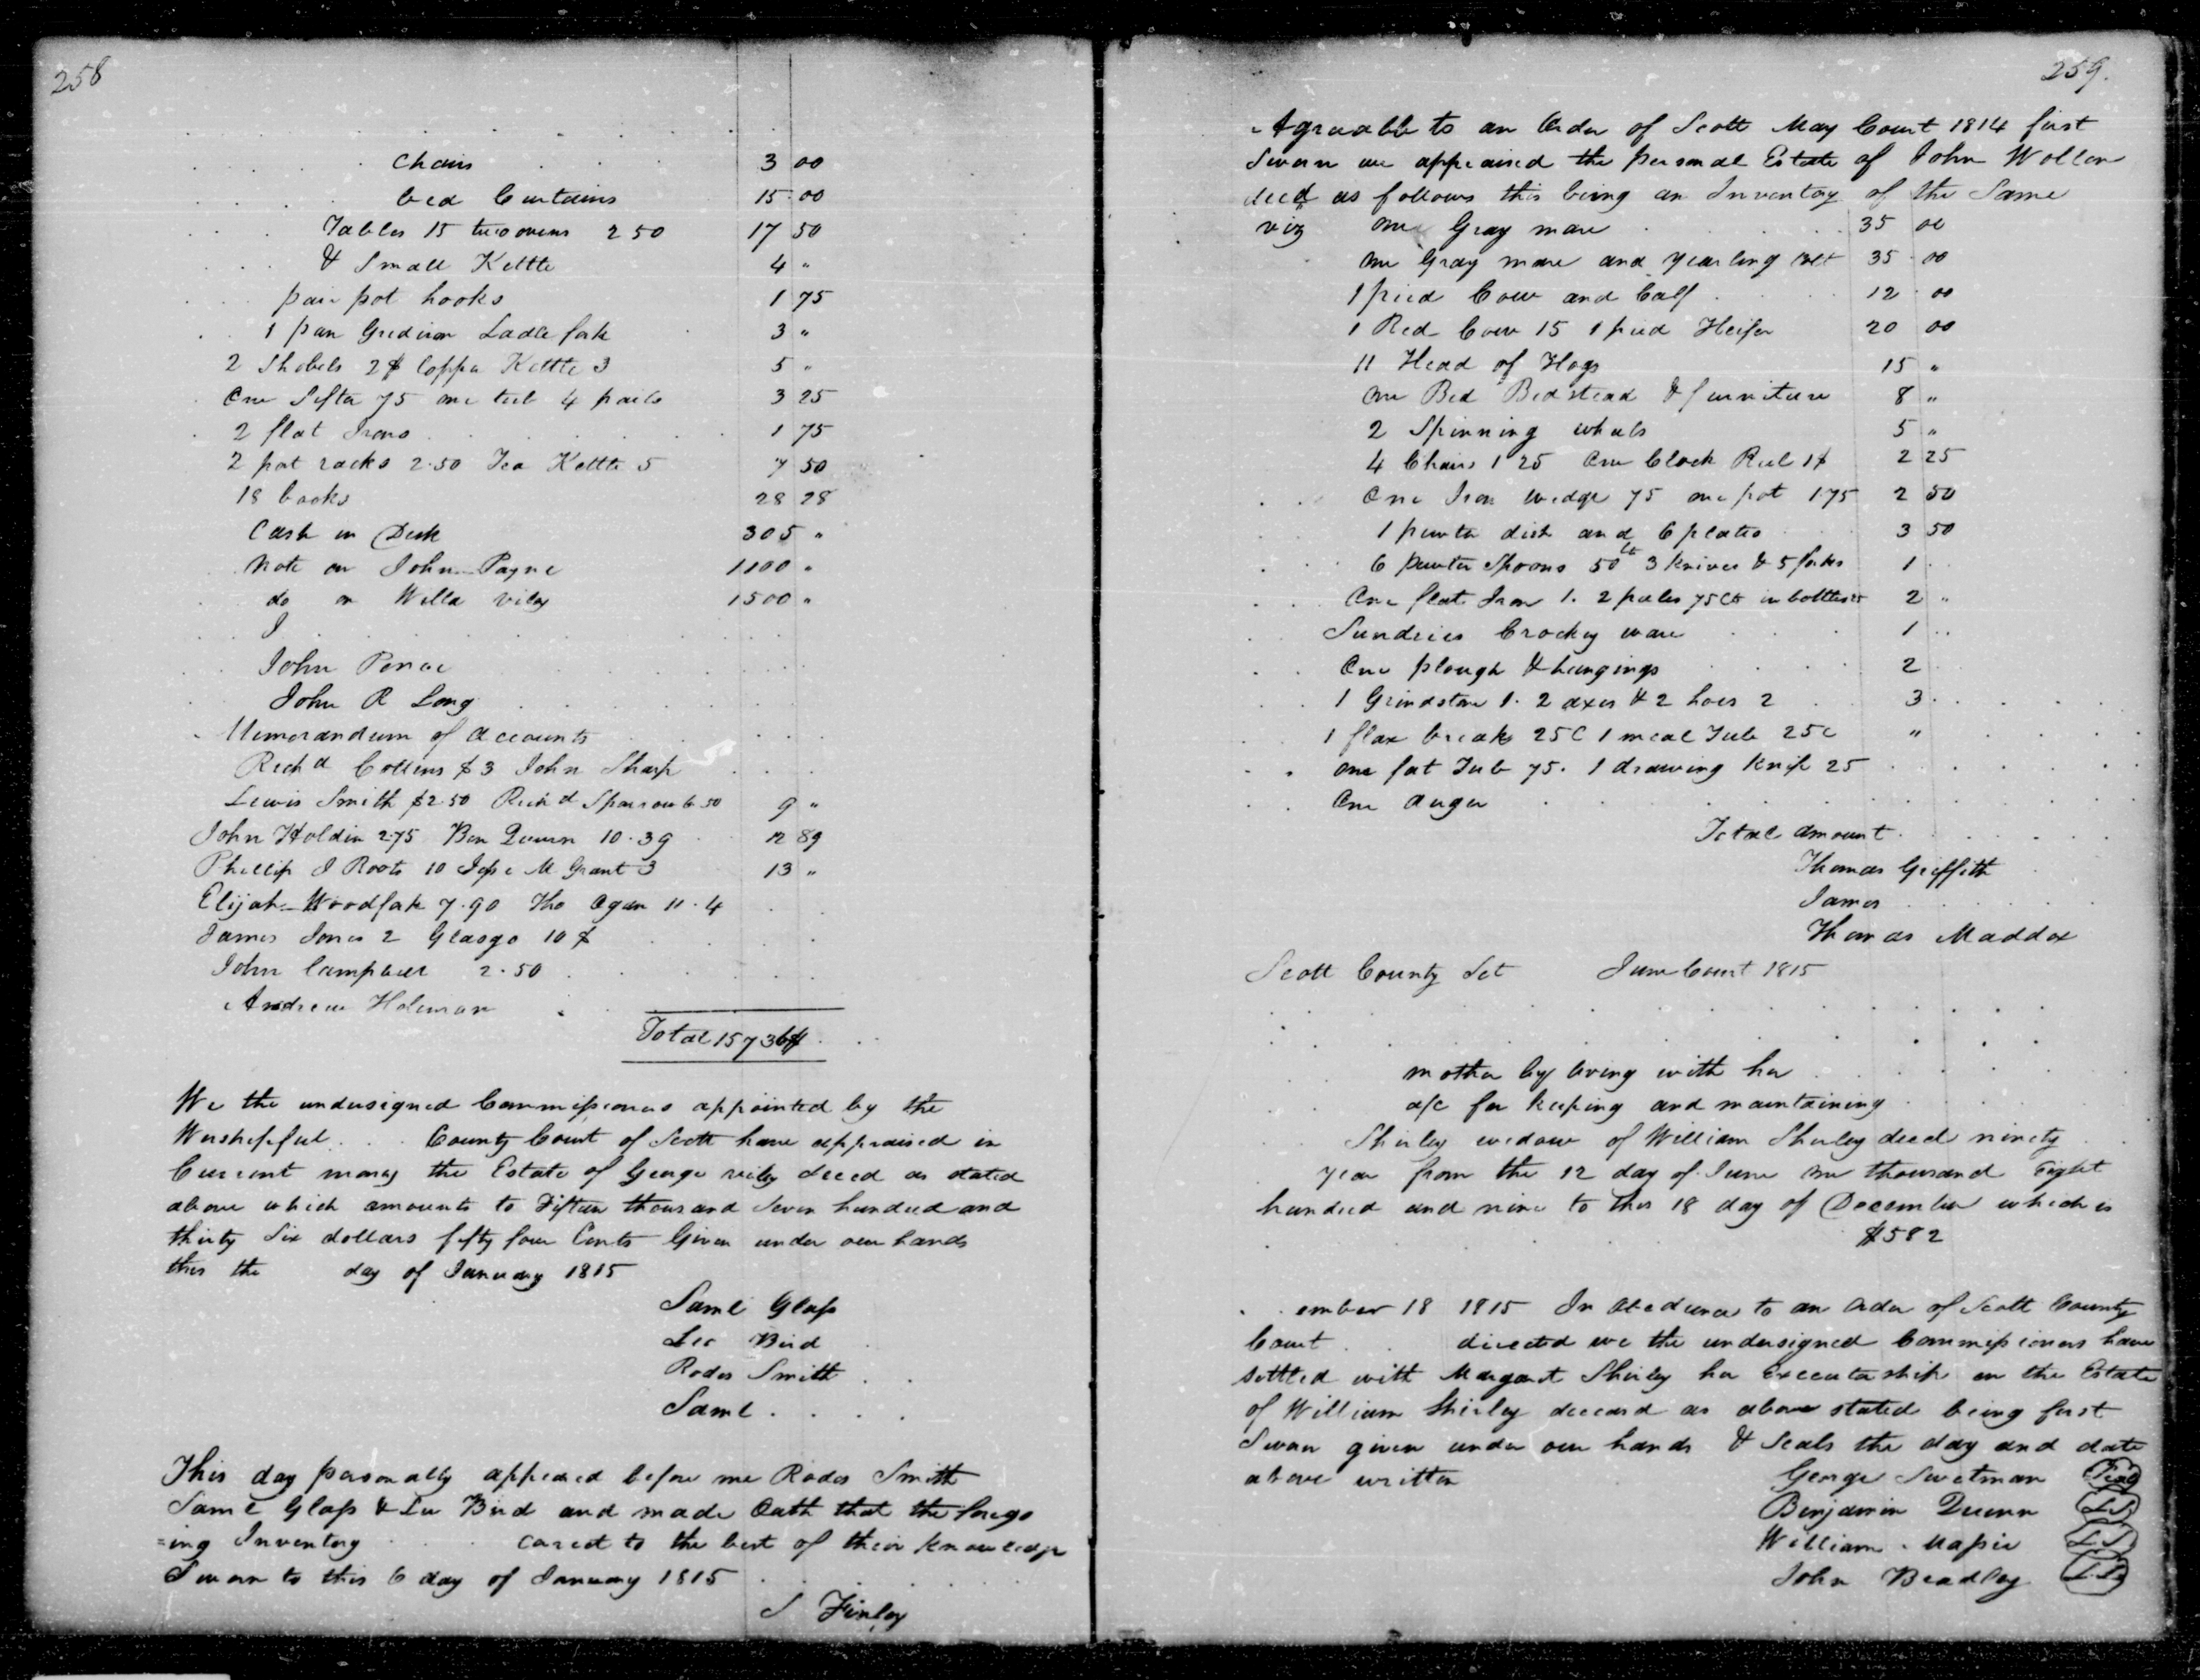 258
chairs 3 00
bed Curtains 15 00
Tables 15 two ovens 2 50 17 50
& Small Kettle 4 "
pair pot hooks 1 75
1 pan Gridiron Ladle fork 3 "
2 Shobels 2$ Coppa Kettle 3 5 "
One Sifter 75 one tub 4 pails 3 25
2 flat Irons 1 75
2 pot racks 2.50 Tea Kettle 5 7 50
18 books 28 28
Cash in Desk 305 "
Note on John Payne 1100 "
do on Willa viley 1500 "
J
John Pence
John R Long
Memorandum of accounts
Richd Collins $3 John Sharp
Lewis Smith $2.50 Richd Sparrow 6 50 9 "
John Holdin 2.75 Ben Quinn 10.39 12 89
Phillip J Roots 10 Jesse M Grant 3 13 "
Elijah Woodfork 7.90 Tho Ogan 11.4
James Jones 2 Glasgo 10 $
John Campbell 2.50
Andrew Holeman
Total 15736
We the undersigned Commissioners appointed by the
Worshipful County Court of Scott have appraised in
Current money the Estate of George viley deced as stated
above which amounts to Fifteen thousand Seven hundred and
thirty Six dollars fifty four Cents Given under our hands
this the day of January 1815
Saml Glass
Lee Bird
Rodes Smith
Saml
This day personally appeared before me Rodes Smith
Saml Glass & Lee Bird and made Oath that the forego
=ing Inventory corect to the best of their knowledge
Sworn to this 6 day of January 1815
S Finley
259.
Agreeable to an Order of Scott May Court 1814 first
Sworn we appraised the personal Estate of John Wollen
decd as follows this being an Inventoy of the Same
viz one Gray mare 35 00
one Gray mare and yearling colt 35 00
1 pied Cow and Calf 12 00
1 Red Cow 15 1 pied Heifer 20 00
11 Head of Hogs 15 "
one Bed Bedstead & furniture 8 "
2 Spinning wheels 5 "
4 Chairs 1 25 One Clock Reel 1$ 2 25
One Iron wedge 75 one pot 1.75 2 50
1 pewter dish and 6 plates 3 50
6 pewter Spoons 50 cts 3 knives & 5 forks 1
One flat Iron 1. 2 pales 75 cts bottles 2 "
Sundries Crockey ware 1
One plough & hangings 2
1 Grindstone 1. 2 axes & 2 hoes 2 3
1 flax break 25 C 1 meal Tub 25 c "
one fat Tub 75. 1 drawing knife 25
One auger
Total amount
Thomas Griffith
James
Thomas Maddox
Scott County Sct June Court 1815
mother by living with her
a/c for keeping and maintaining
Shirley widow of William Shirley decd ninety
year from the 12 day of June one thousand Eight
hundred and nine to this 18 day of December which is
$582
ember 18 1815 In Obedience to an Order of Scott County
Court directed we the undersigned Commissioners have
settled with Margaret Shirley her Executorship on the Estate
of William Shirley deceasd as above stated being first
Sworn given under our hands & Seals the day and date
above written George Swetman Seal
Benjamin Quinn L.S.
William Massie L.S.
John Bradley L.S.